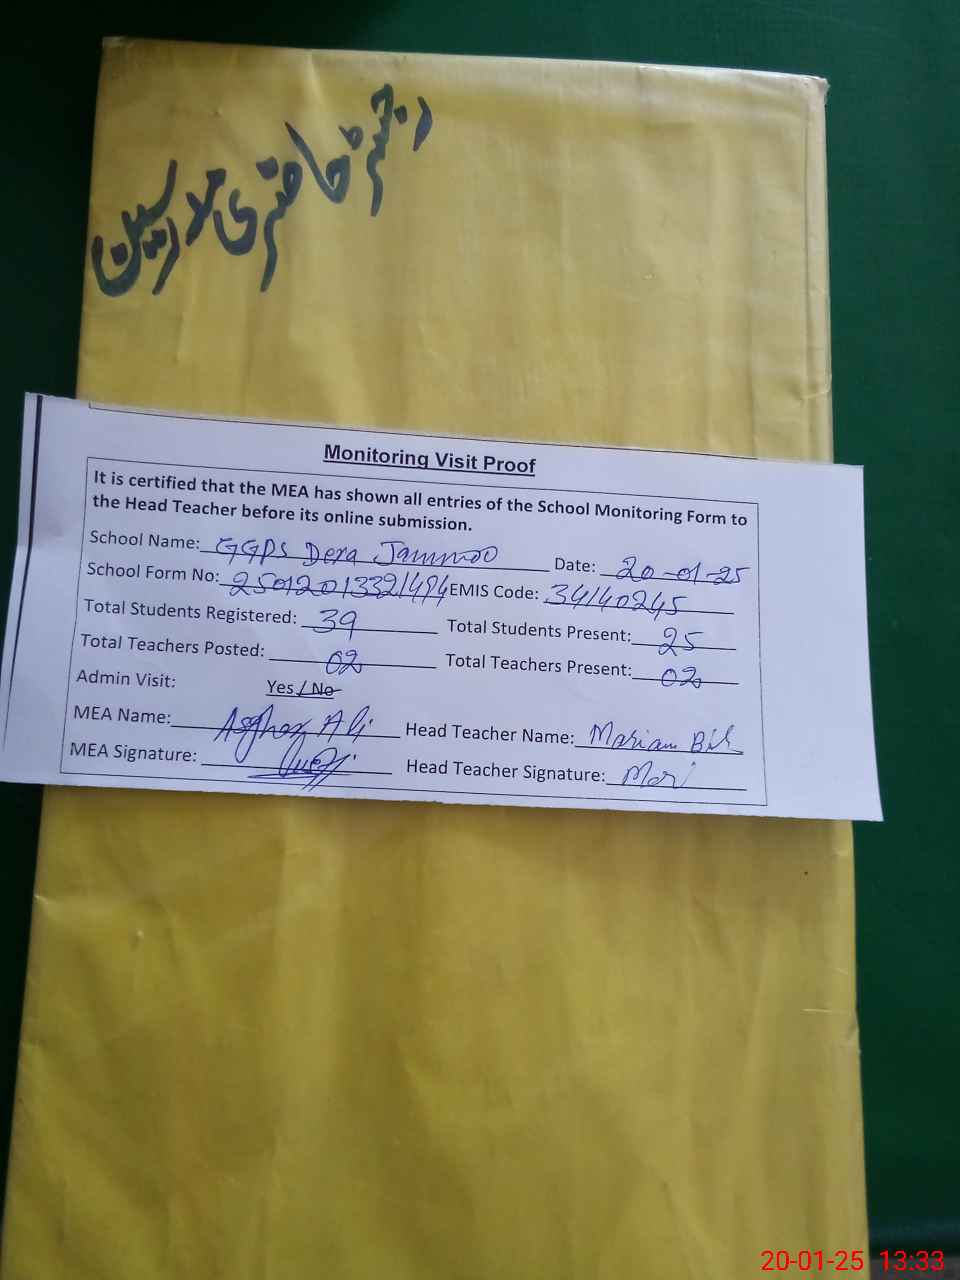 رجسٹر حاضری ملازمین
Monitoring Visit Proof
It is certified that the MEA has shown all entries of the School Monitoring Form to
the Head Teacher before its online submission.
School Name: GGPS Dera Jammoo Date: 20-01-25
School Form No: 25012013321494 EMIS Code: 34140245
Total Students Registered: 39 Total Students Present: 25
Total Teachers Posted: 02 Total Teachers Present: 02
Admin Visit: Yes / No
MEA Name: Asghar Ali Head Teacher Name: Mariam Bib
MEA Signature: Head Teacher Signature: Mari
20-01-25 13:33